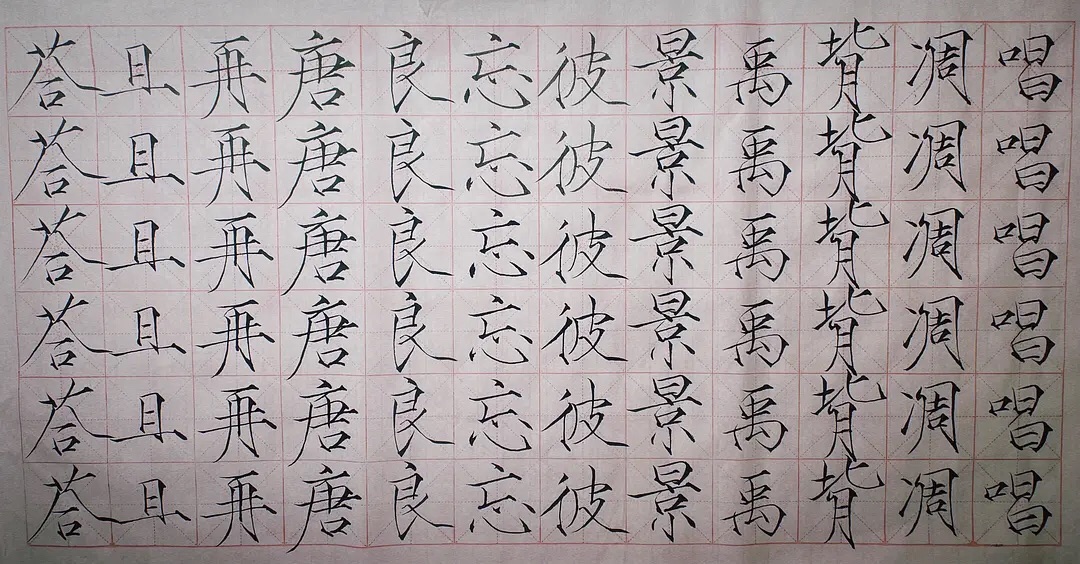 唱唱唱唱唱唱
凋凋凋凋凋凋
背背背背背背
禹禹禹禹禹禹
景景景景景景
彼彼彼彼彼彼
忘忘忘忘忘忘
良良良良良良
唐唐唐唐唐唐
再再再再再再
且且且且且且
荅荅荅荅荅荅